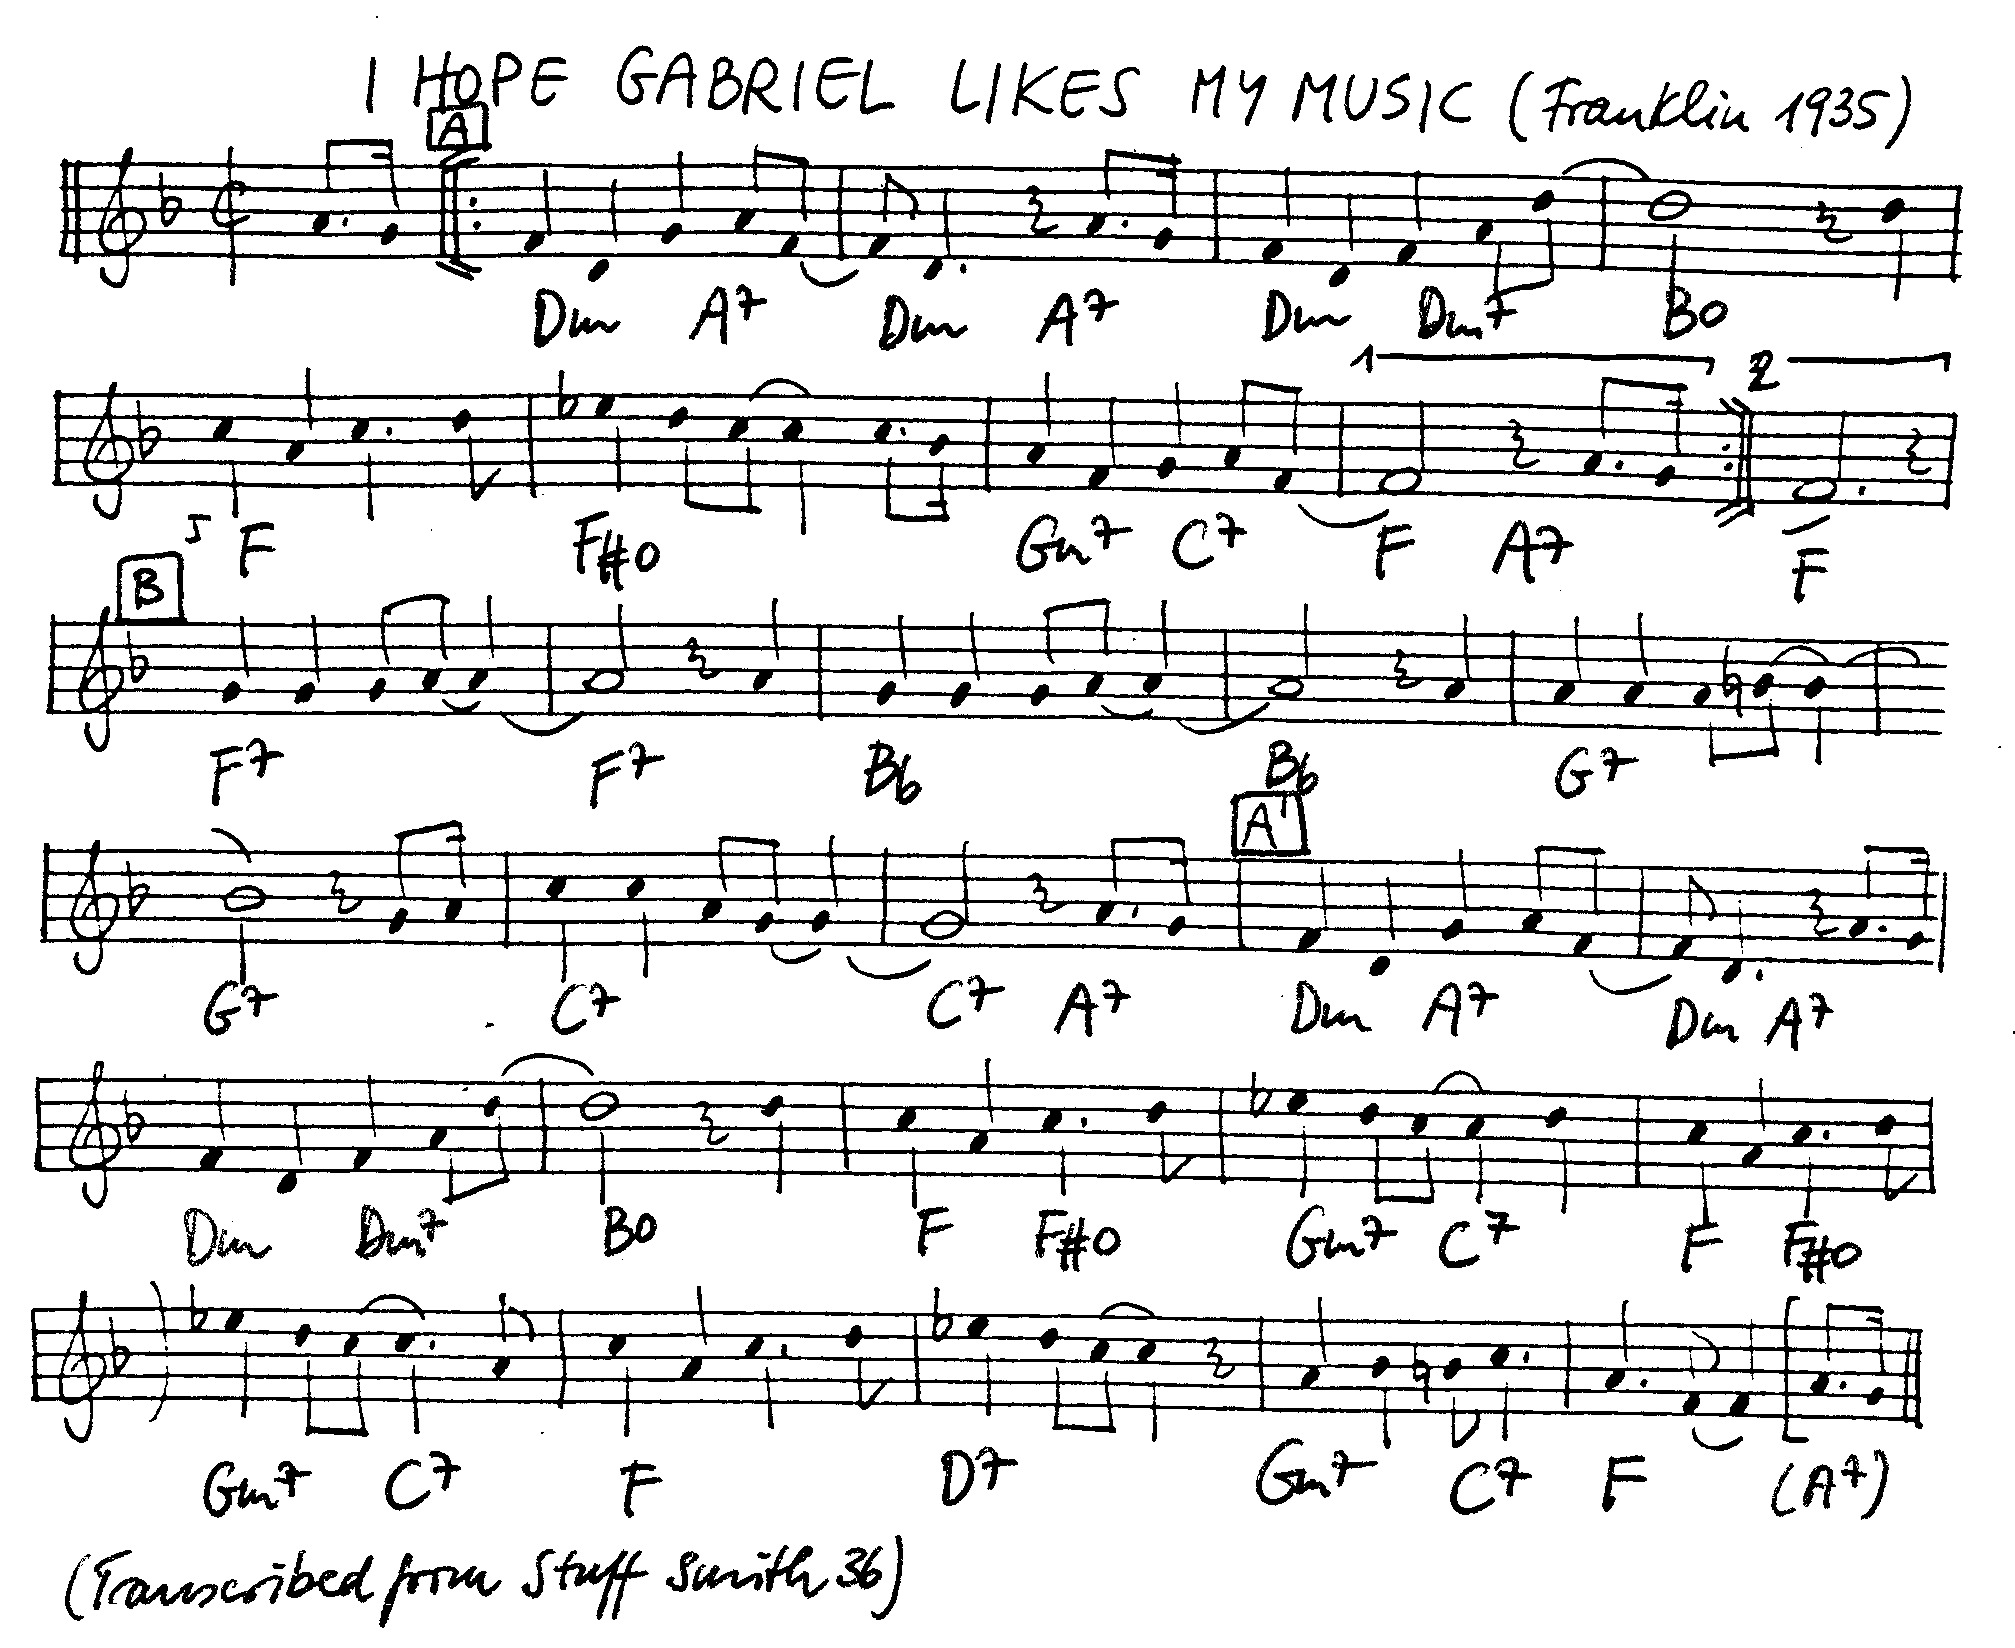 I HOPE GABRIEL LIKES MY MUSIC (Franklin 1935)
A
Dm A7 Dm A7 Dm Dm7 Bo
1 2
5 F F#o Gm7 C7 F A7 F
B
F7 F7 Bb Bb G7
A'
G7 C7 C7 A7 Dm A7 Dm A7
Dm Dm7 Bo F F#o Gm7 C7 F F#o
Gm7 C7 F D7 Gm7 C7 F (A7)
(Transcribed from Stuff Smith 36)